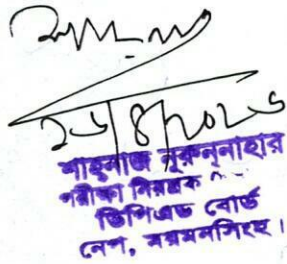 ২৬/৪/২০২৬
শাহনাজ নূরুননাহার
পরীক্ষা নিয়ন্ত্রক
ডিপিএড বোর্ড
নেপ, ময়মনসিংহ।